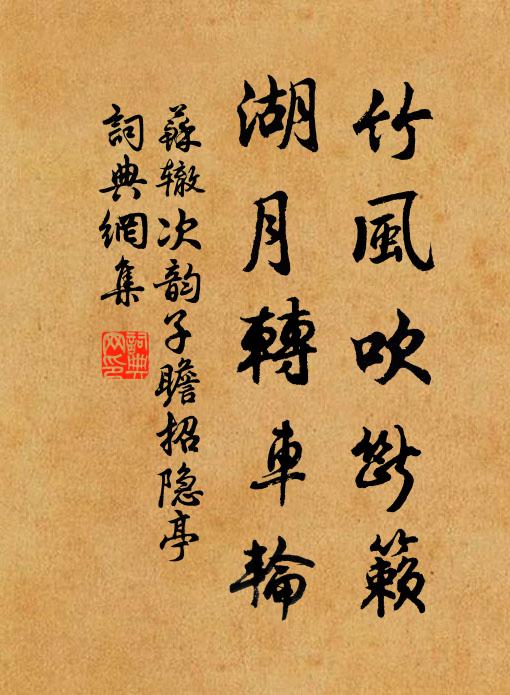 竹風吹斷籟
湖月轉車輪
蘇辙次韵子瞻招隐亭
詞典網集
詞典网印